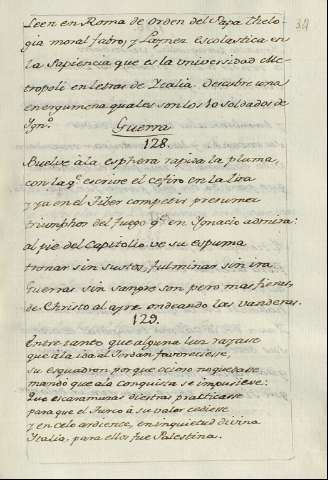 34
Leen en Roma de orden del Papa theolo-
gia moral fabro, y Laynez escolastica en
la Sapiencia que es la universidad Me-
tropoli en letras de Italia. Descubre una
energumena quales son los 10 soldados de
Ygn.º
Guerra
128.
Buelve à la esphera rapida la pluma,
con la q.e escrive el cefiro en la lira
y ya en el Tiber competir presume
triumphos del fuego q.e en Ygnacio admira:
al pie del Capitolio ve su espuma
tronar sin sustos, fulminar sin ira
Guerras sin sangre son pero mas fieras,
de Christo al ayre ondeando las vanderas.
129.
Entre tanto que alguna luz rayase
que à la ida al Jordan favoreciesse,
su esquadron, porque ocioso no quedase
mandó que à la conquista se impusiese:
Que escaramuzas diestras practicasse
para que el Turco à su valor cediesse
y en celo ardiente, en inquietud divina
Italia, para ellos fue Palestina.